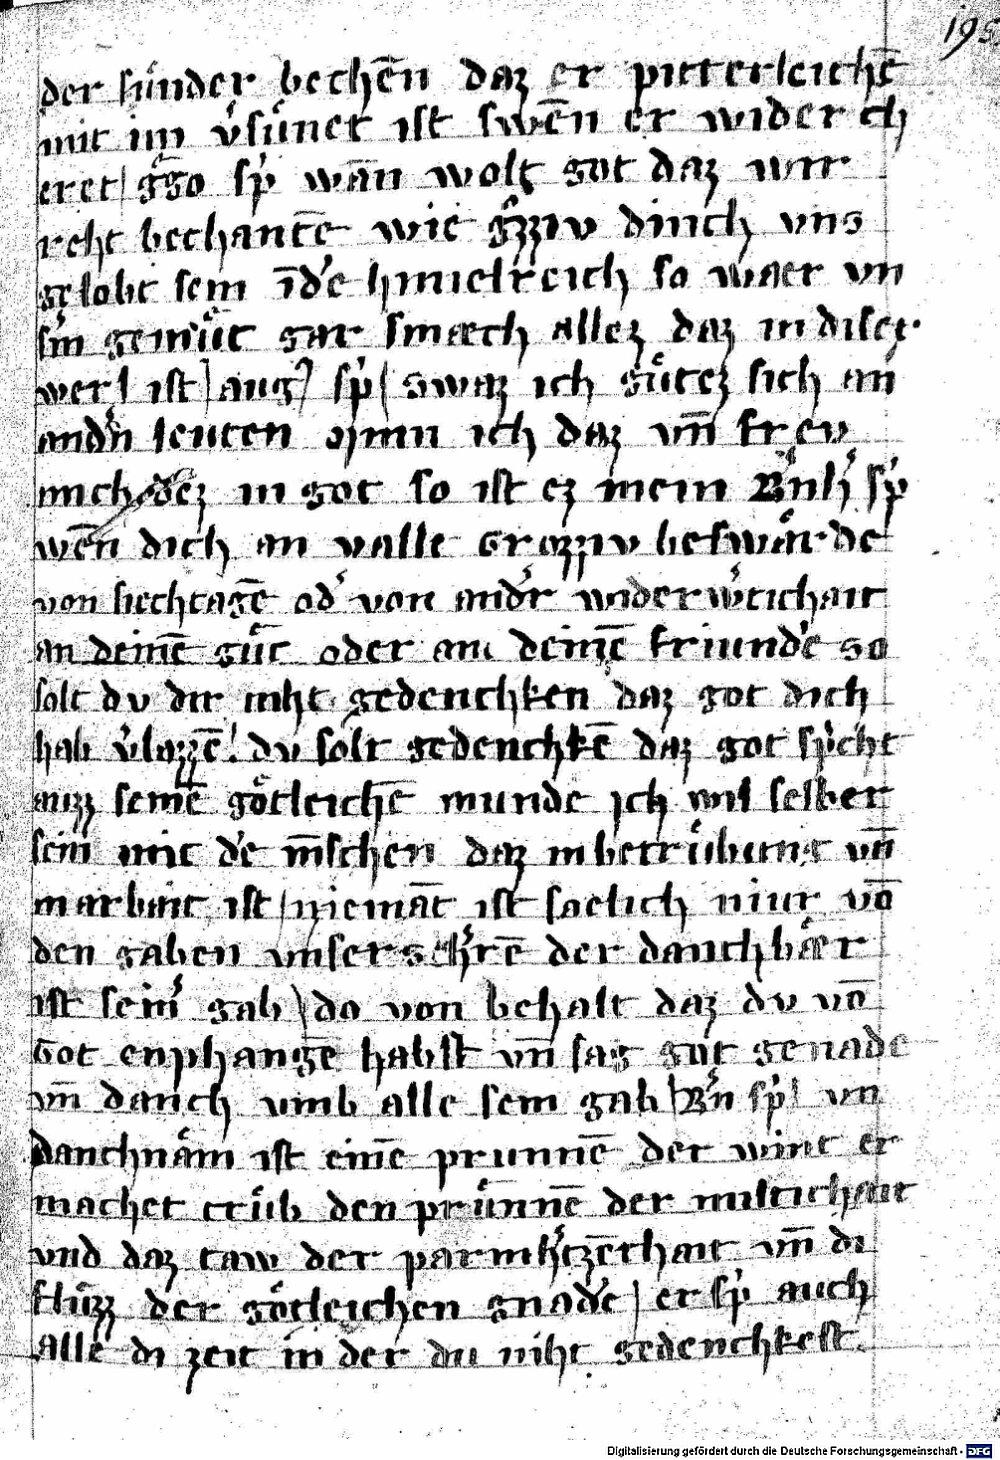 195
der sünder bechēn daz er pitterleichē
mit im v̓sünet ist swēn er wider ch
eret / g̓go sp̓ wān wolt got daz wir
reht bechantē wie g̓zziv dinch vns
gelobt sein īd̓e himelreich so waer vn
s̓m gemüt gar smæch allez daz in diser
werlt ist / aug / sp̓ / swaz ich gütez sich an
and̓n leuten oimn ich daz vn̄ frev
mich dez in got so ist ez mein B̓nh̓ sp̓
wēn dich an valle grozziv beswärde
von siechtagē od̓ von and̓r widerw̓tichait
an deinē güt oder an deinē friund̓e so
solt dv dir niht gedenchken daz got dich
hab v̓lazzē! dv solt gedenchkē daz got sp̓cht
auzz seinē götleichē munde ich wil selber
sein mit d̓e m̄schen daz in betrübung vn̄
in arbait ist / niemāt ist saelich niur vō
den gaben vnsers h̓rē der danchbær
ist sein̓ gab / do von behalt daz dv vō
got enphangē habst vn̄ sag got genade
vn̄ danch vmb alle sein gab / B̓n sp̓ / vn
danchnäm ist einē prunnē der wint er
machet trüb den prünnē der miltichait
vnd daz taw der parmh̓tzēthait vn̄ di
flüzz der götleichen gnad̓e / er sp̓ auch
alle di zeit in der du niht gedenchkest.
Digitalisierung gefördert durch die Deutsche Forschungsgemeinschaft - DFG